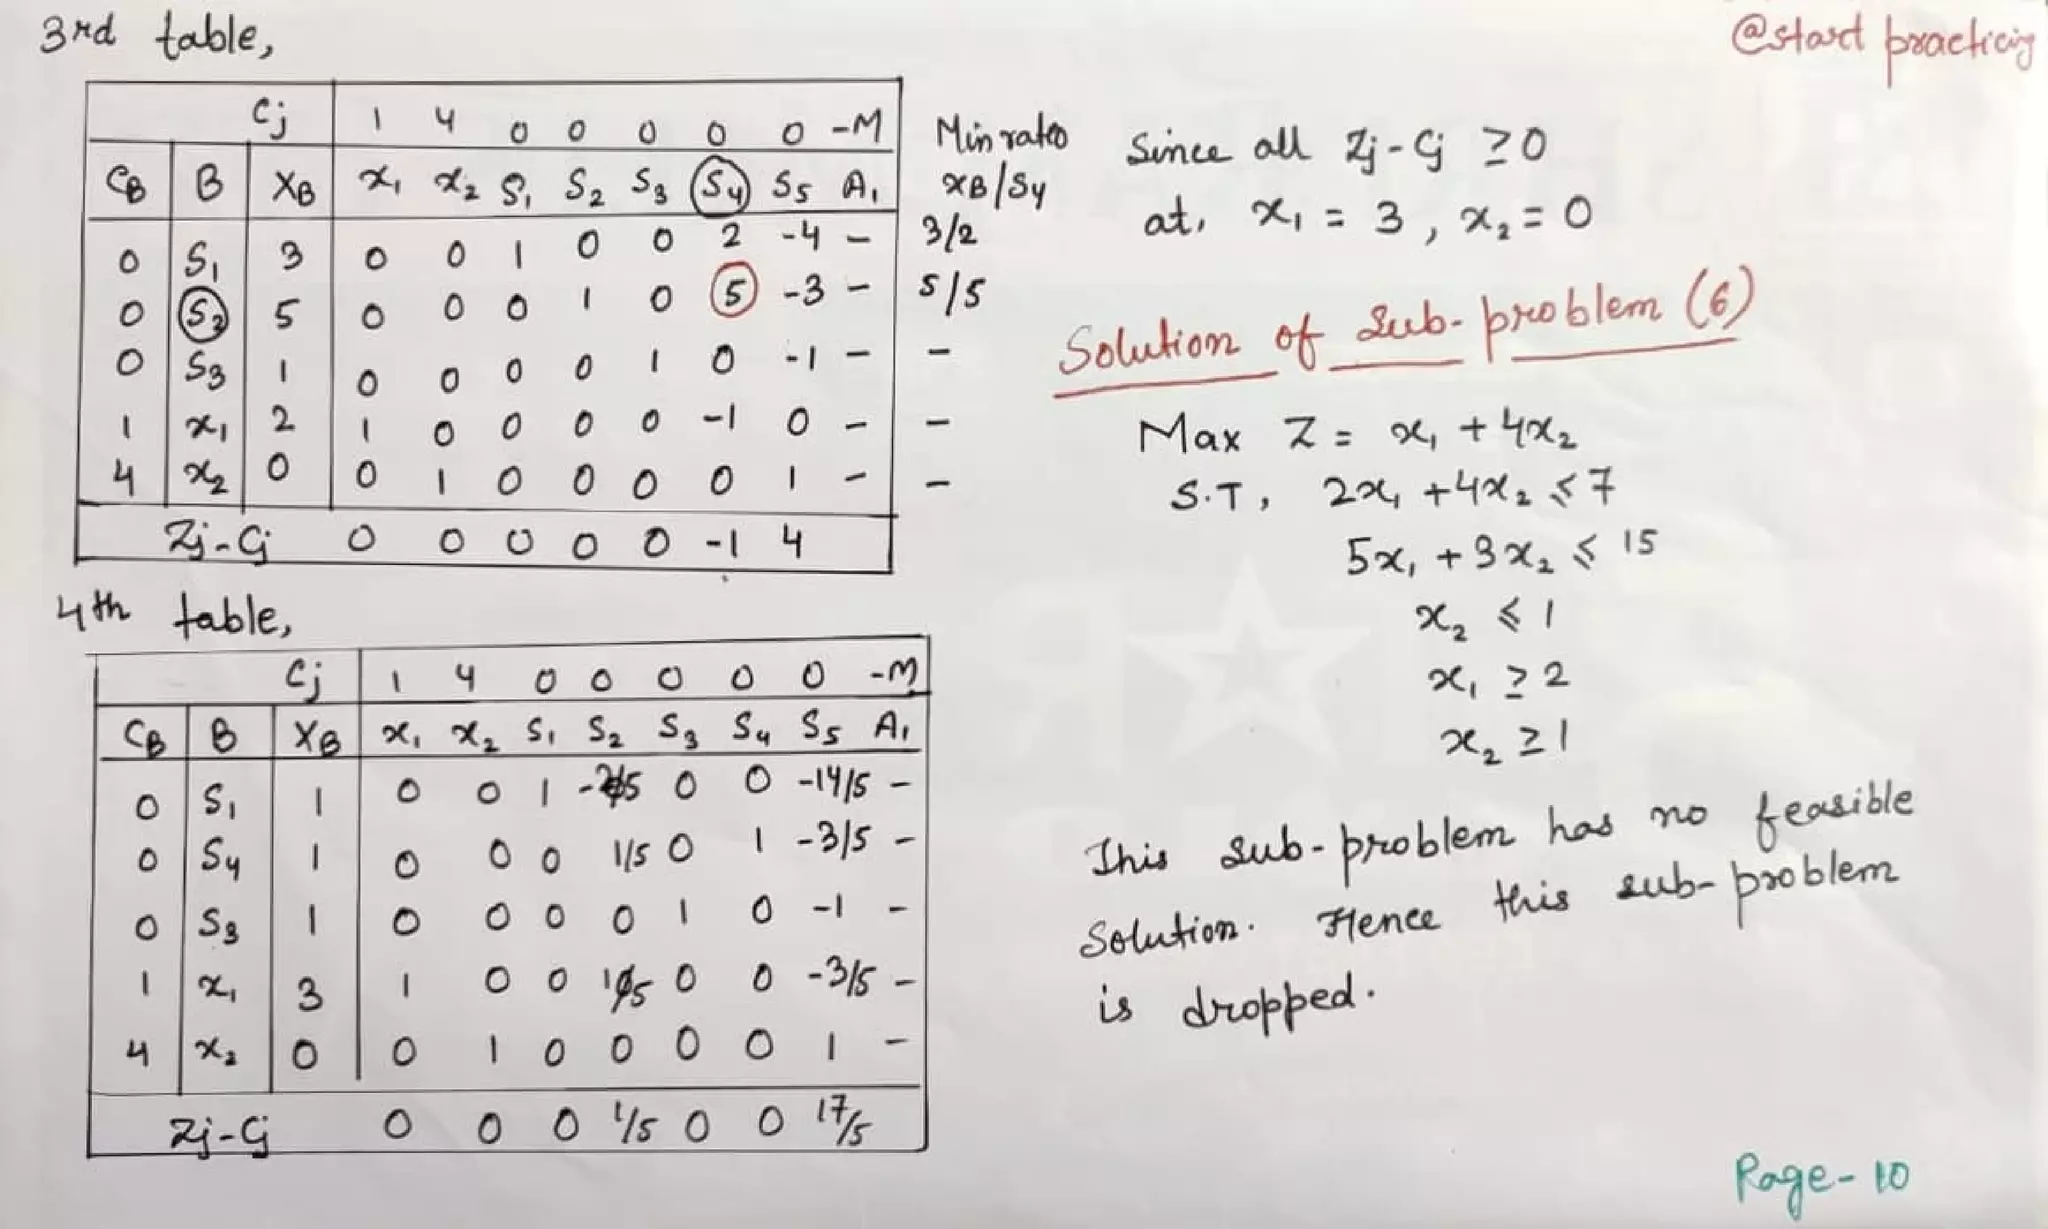 3rd table,
@start practicing
Cj 1 4 0 0 0 0 0 -M
CB B XB x₁ x₂ S₁ S₂ S₃ S₄ S₅ A₁ Min ratio XB/S₄
0 S₁ 3 0 0 1 0 0 2 -4 - 3/2
0 S₂ 5 0 0 0 1 0 5 -3 - 5/5
0 S₃ 1 0 0 0 0 1 0 -1 - -
1 x₁ 2 1 0 0 0 0 -1 0 - -
4 x₂ 0 0 1 0 0 0 0 1 - -
Zj-Cj 0 0 0 0 0 -1 4
4th table,
Cj 1 4 0 0 0 0 0 -M
CB B XB x₁ x₂ S₁ S₂ S₃ S₄ S₅ A₁
0 S₁ 1 0 0 1 -2/5 0 0 -14/5 -
0 S₄ 1 0 0 0 1/5 0 1 -3/5 -
0 S₃ 1 0 0 0 0 1 0 -1 -
1 x₁ 3 1 0 0 1/5 0 0 -3/5 -
4 x₂ 0 0 1 0 0 0 0 1 -
Zj-Cj 0 0 0 1/5 0 0 17/5
Since all Zj-Cj ≥0
at, x₁ = 3, x₂ = 0
Solution of Sub-problem (6)
Max Z = x₁ + 4x₂
S.T, 2x₁ + 4x₂ ≤ 7
5x₁ + 3x₂ ≤ 15
x₂ ≤ 1
x₁ ≥ 2
x₂ ≥ 1
This sub-problem has no feasible
Solution. Hence this sub-problem
is dropped.
Page-10